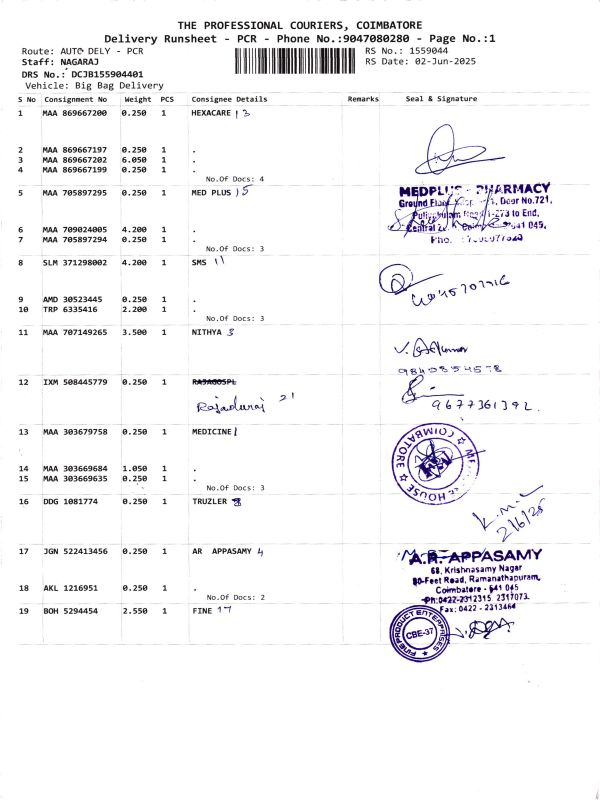 THE PROFESSIONAL COURIERS, COIMBATORE
Delivery Runsheet - PCR - Phone No.:9047080280 - Page No.:1
Route: AUTO DELY - PCR
RS No.: 1559044
Staff: NAGARAJ
RS Date: 02-Jun-2025
DRS No.: DCJB155904401
Vehicle: Big Bag Delivery
S No Consignment No Weight PCS Consignee Details Remarks Seal & Signature
1 MAA 869667200 0.250 1 HEXACARE 13
2 MAA 869667197 0.250 1 .
3 MAA 869667202 6.050 1 .
4 MAA 869667199 0.250 1 .
No.Of Docs: 4
5 MAA 705897295 0.250 1 MED PLUS 15
MEDPLUS - PHARMACY
Door No.721,
6 MAA 709024005 4.200 1 .
7 MAA 705897294 0.250 1 .
No.Of Docs: 3
8 SLM 371298002 4.200 1 SMS 11
9 AMD 30523445 0.250 1 .
10 TRP 6335416 2.200 1 .
No.Of Docs: 3
11 MAA 707149265 3.500 1 NITHYA 3
12 IXM 508445779 0.250 1 RAJAGOSPL
Rajadurai 21
9677361392.
13 MAA 303679758 0.250 1 MEDICINE 1
COIMBATORE
HOUSE
14 MAA 303669684 1.050 1 .
15 MAA 303669635 0.250 1 .
No.Of Docs: 3
16 DDG 1081774 0.250 1 TRUZLER 8
2/6/25
17 JGN 522413456 0.250 1 AR APPASAMY 4
A.R. APPASAMY
68, Krishnasamy Nagar
80-Feet Road, Ramanathapuram,
Coimbatore - 641 045
Ph:0422-2312315, 2317073.
Fax: 0422 - 2313464
18 AKL 1216951 0.250 1 .
No.Of Docs: 2
19 BOH 5294454 2.550 1 FINE 17
FINE PRODUCT ENTERPRISES
CBE-37